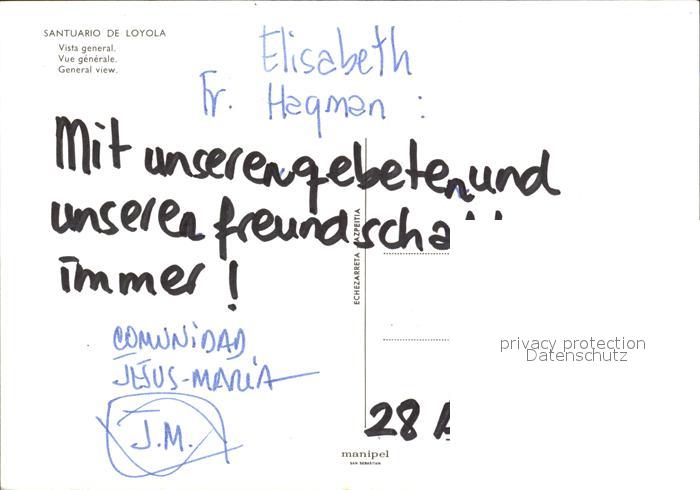 SANTUARIO DE LOYOLA
Vista general.
Vue générale.
General view.
Elisabeth
Fr. Hagman :
Mit unseren gebeten und
unseren freundscha
immer !
COMUNIDAD
JESUS-MARIA
J.M.
ECHEZARRETA AZPEITIA
28
manipel
SAN SEBASTIAN
privacy protection
Datenschutz